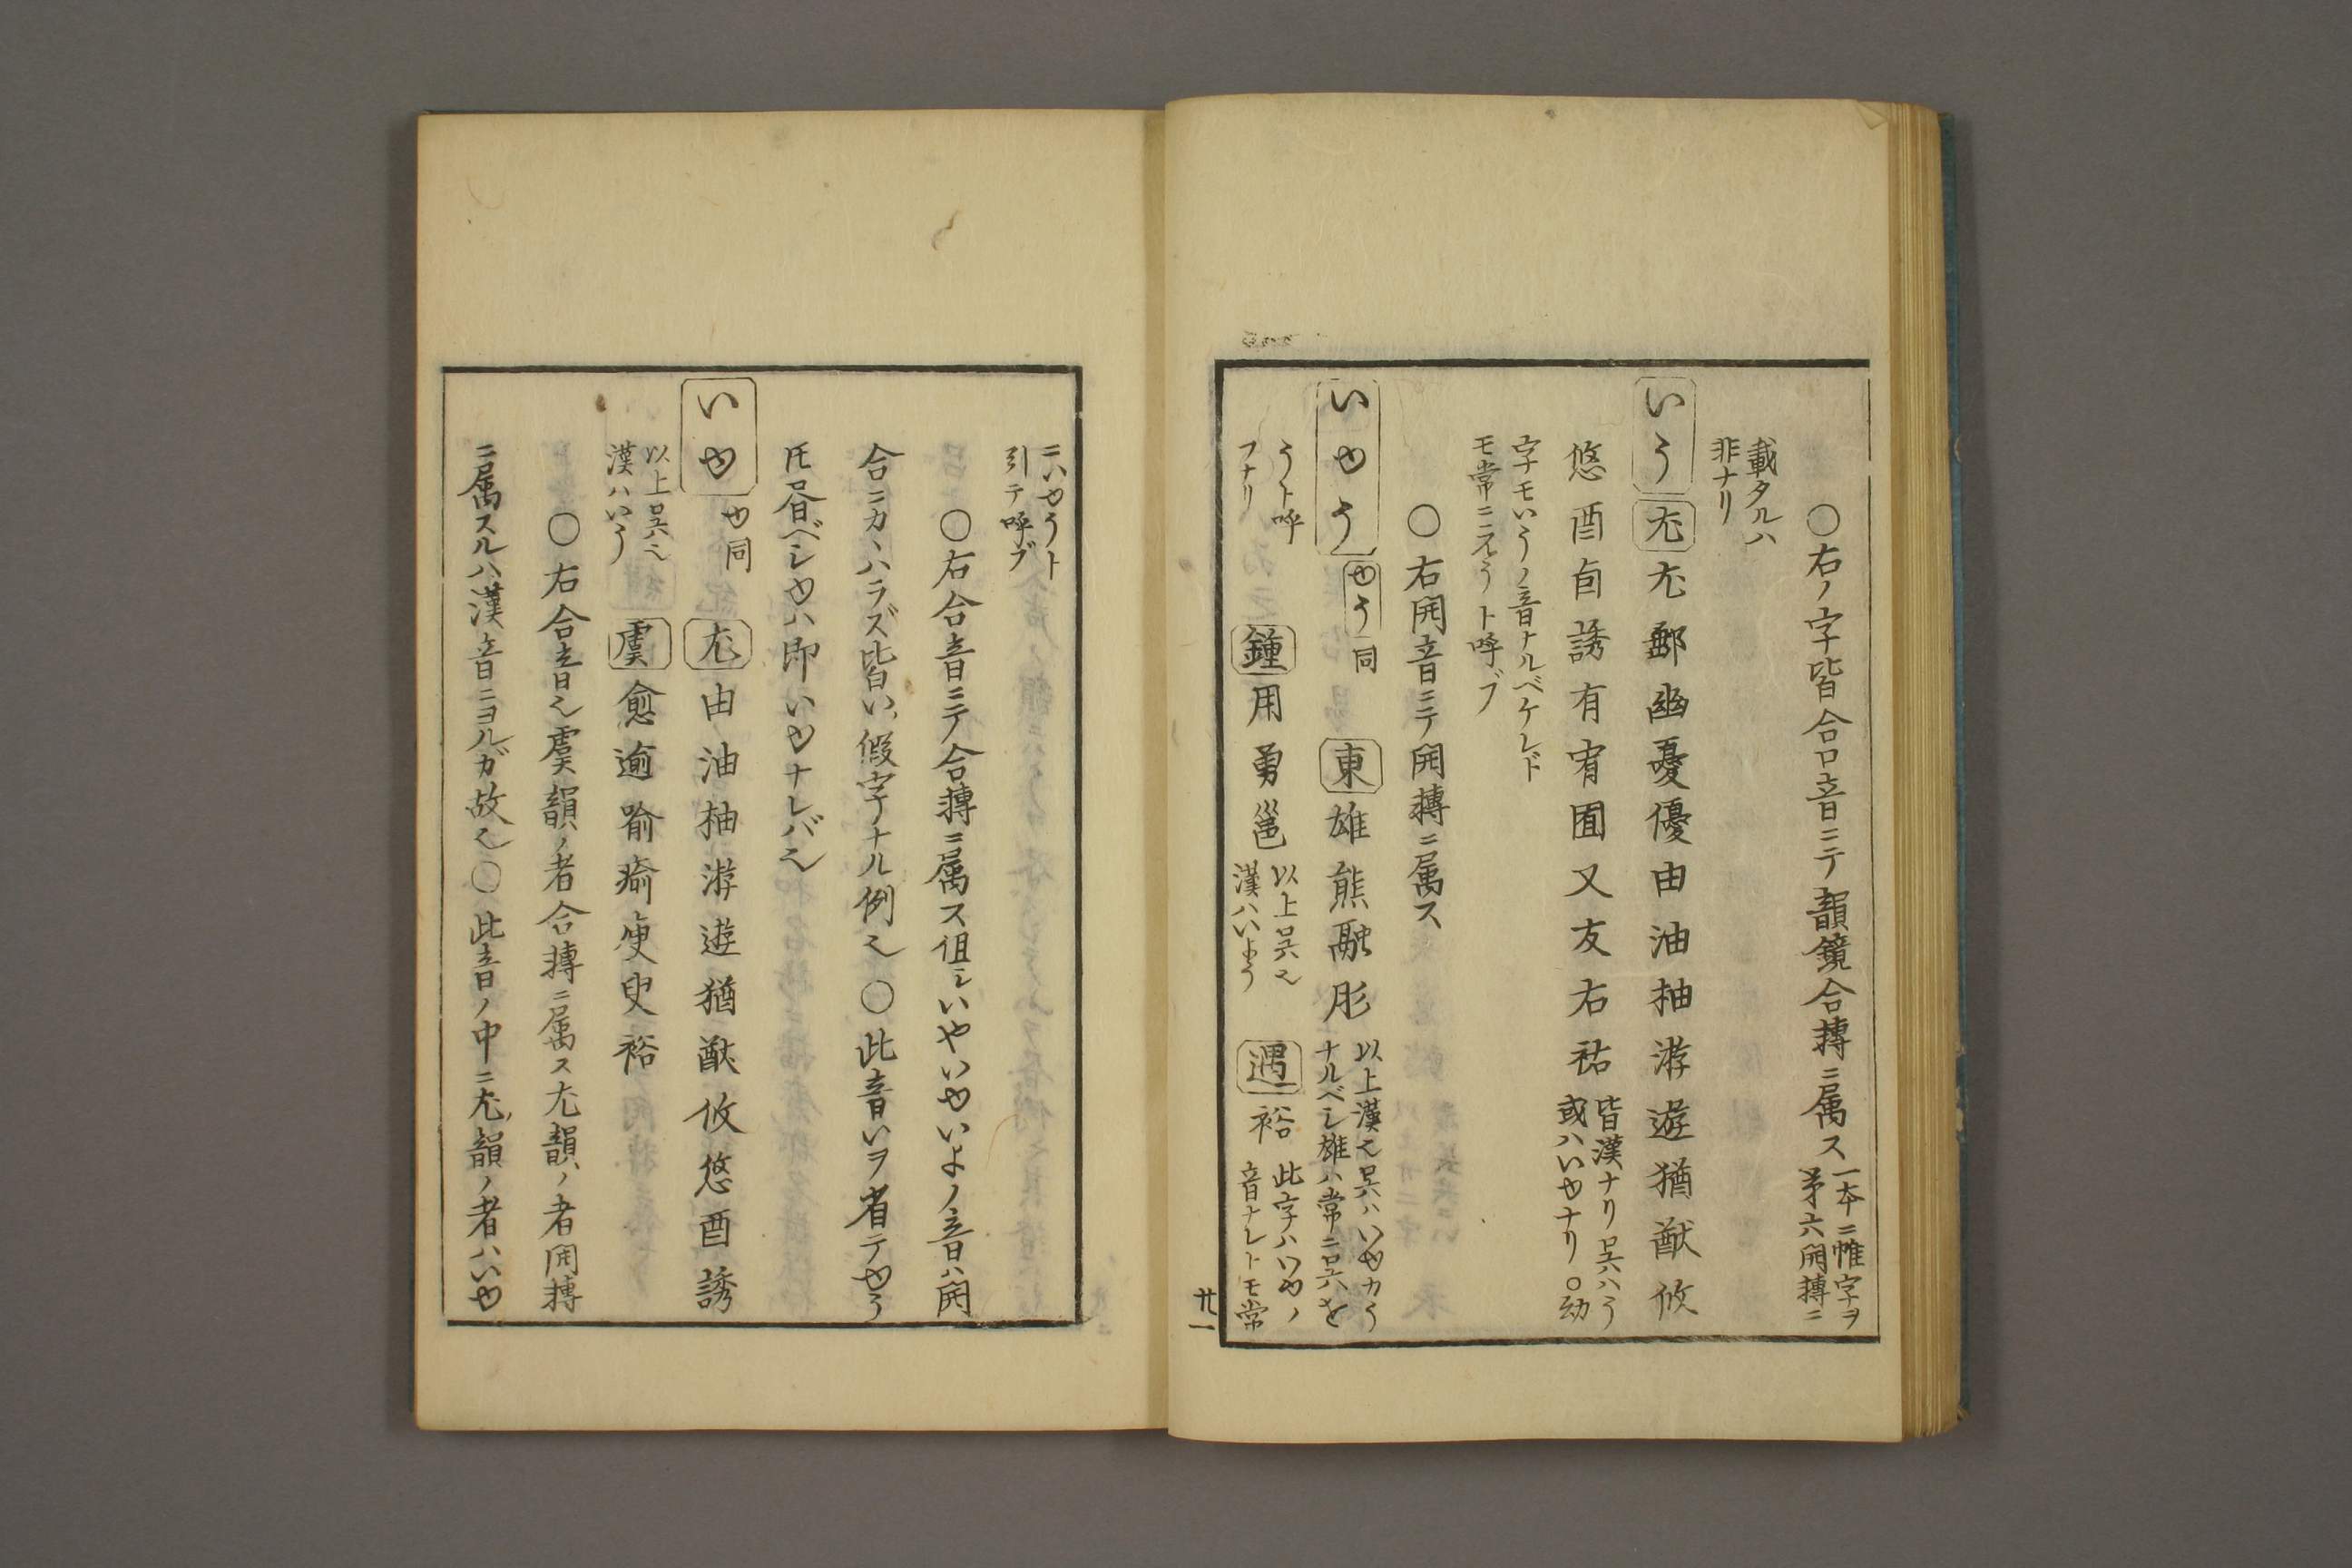 ○右ノ字皆合口音ニテ韻鏡合轉ニ属ス
一本ニ帷字ヲ
第六開轉ニ
載タルハ
非ナリ
いう 尤 尤郵幽憂優由油柚游遊猶猷攸
悠酉卣誘有宥囿又友右祐
皆漢ナリ呉ハう
或ハいゆナリ○幼
字モいうノ音ナルベケレド
モ常ニえうト呼ブ
○右開音ニテ開轉ニ属ス
いゆう ゆう同 東 雄熊融肜
以上漢也呉ハいゆカう
ナルベシ雄ハ常ニ呉ハを
うト呼
フナリ
鍾 用勇邕
以上呉也
漢ハいよう
遇 裕
此字ハいゆノ
音ナレトモ常
廿一
ニいゆうト
引テ呼ブ
○右合音ニテ合轉ニ属ス但シいやいゆいよノ音ハ開
合ニカヽハラズ皆い假字ナル例也○此音いヲ省テゆう
トモ書ベシゆハ即いゆナレバ也
いゆ ゆ同 尤 由油柚游遊猶猷攸悠酉誘
以上呉也
漢ハいう
虞 愈逾喩瘉庾臾裕
○右合音也虞韻ノ者合轉ニ属ス尤韻ノ者開轉
ニ属スルハ漢音ニヨルガ故也○此音ノ中ニ尤韻ノ者ハいゆ